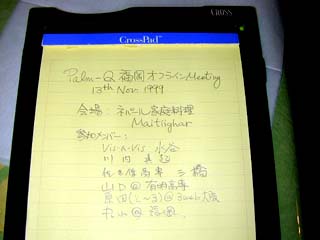 CROSS
CrossPad™
Palm-Q 福岡オフラインMeeting
13th Nov. 1999
会場: ネパール家庭料理
Maitighar
参加メンバー:
Vis-a-Vis 水谷
川内
高専 三橋
山口@有明高専
原田(し〜3)@3web大阪
丸山@福岡